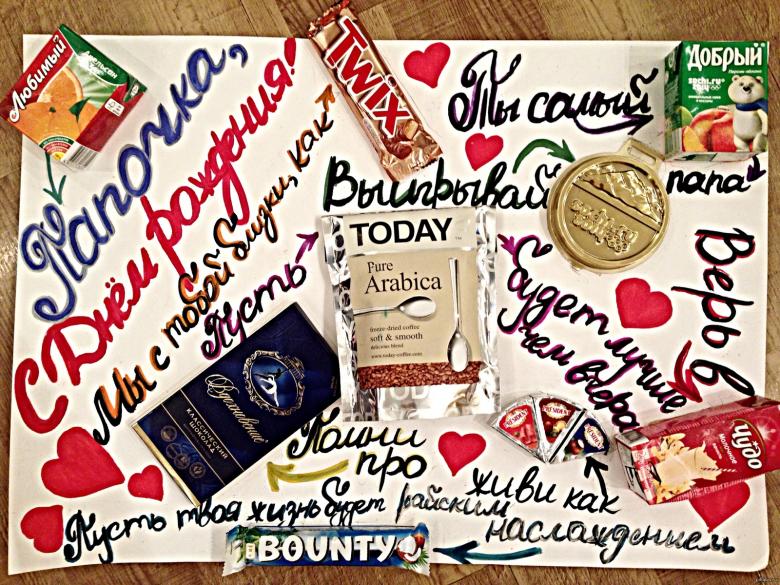 Любимый
Апельсин
Папочка,
С Днём рождения!
Мы с тобой близки, как
TWIX
Ты самый
Добрый
sochi.ru
2014
папа
Выигрывай
Пусть
TODAY
Pure
Arabica
freeze dried coffee
soft & smooth
delicious blend
www.today-coffee.com
TODAY
будет лучше
чем вчера
Верь в
Чудо
Молочное
Помни
про
Вдохновение
КЛАССИЧЕСКИЙ
ШОКОЛАД
живи как
PRESIDENT
PRESIDENT
PRESIDENT
Пусть твоя жизнь будет райским
наслаждением
BOUNTY